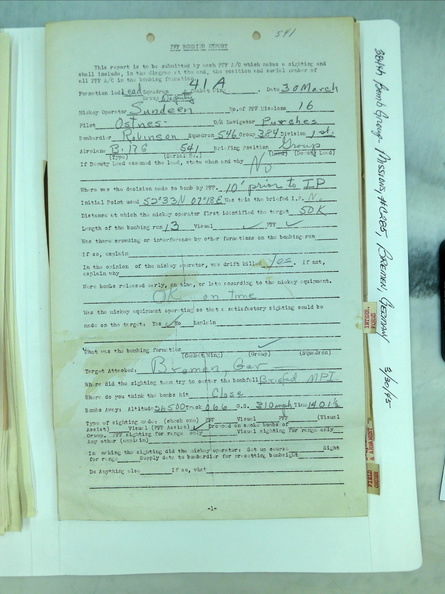 541
PFF BOMBING REPORT
This report is to be submitted by each PFF A/C which makes a sighting and
shall include, in the diagram at the end, the position and serial number of
all PFF A/C in the bombing formation.
Formation Led Lead 41 A Date 30 March
Group Deputy
Mickey Operator Sundeen No. of PFF Missions 16
Pilot Ostnes D/R Navigator Purches
Bombardier Robinson Squadron 546 Group 384 Division 1st
Airplane B-17G 541 Briefing Position Group
(Type) (Serial No.) (Lead) (Deputy Lead)
If Deputy Lead assumed the lead, state when and why No
Where was the decision made to bomb by PFF. 10' prior to IP
Initial Point used 52°33N 07°18E Was this the briefed I.P. N
Distance at which the mickey operator first identified the target 50K
Length of the bombing run 13 Visual PFF ✓
Was there crowding or interference by other formations on the bombing run
If so, explain
In the opinion of the mickey operator, was drift killed yes. If not,
explain why
Were bombs released early, on time, or late according to the mickey equipment.
OK on time
Was the mickey equipment operating so that a satisfactory sighting could be
made on the target: Yes ✓ No Explain
What was the bombing formation ✓
(Combat Wing) (Group) (Squadron)
Target Attacked: Bremen, Ger
Where did the sighting team try to center the bombfall Briefed MPI
Where do you think the bombs hit Close
Bombs Away: Altitude 26500 Track 066 G.S. 310 mph Time 1401½
Type of sighting made: (check one) PFF Visual PFF (Visual
Assist) Visual (PFF Assist) ✓ Dropped on smoke bombs of
Group. PFF sighting for range only Visual sighting for range only
Any other (explain)
In making the sighting did the mickey operator: Set up course Sight
for range Supply data to bombardier for presetting bombsight
Do Anything else If so, what
-1-
384th Bomb Group - Missions, #41285, Bremen, Germany 3/30/45